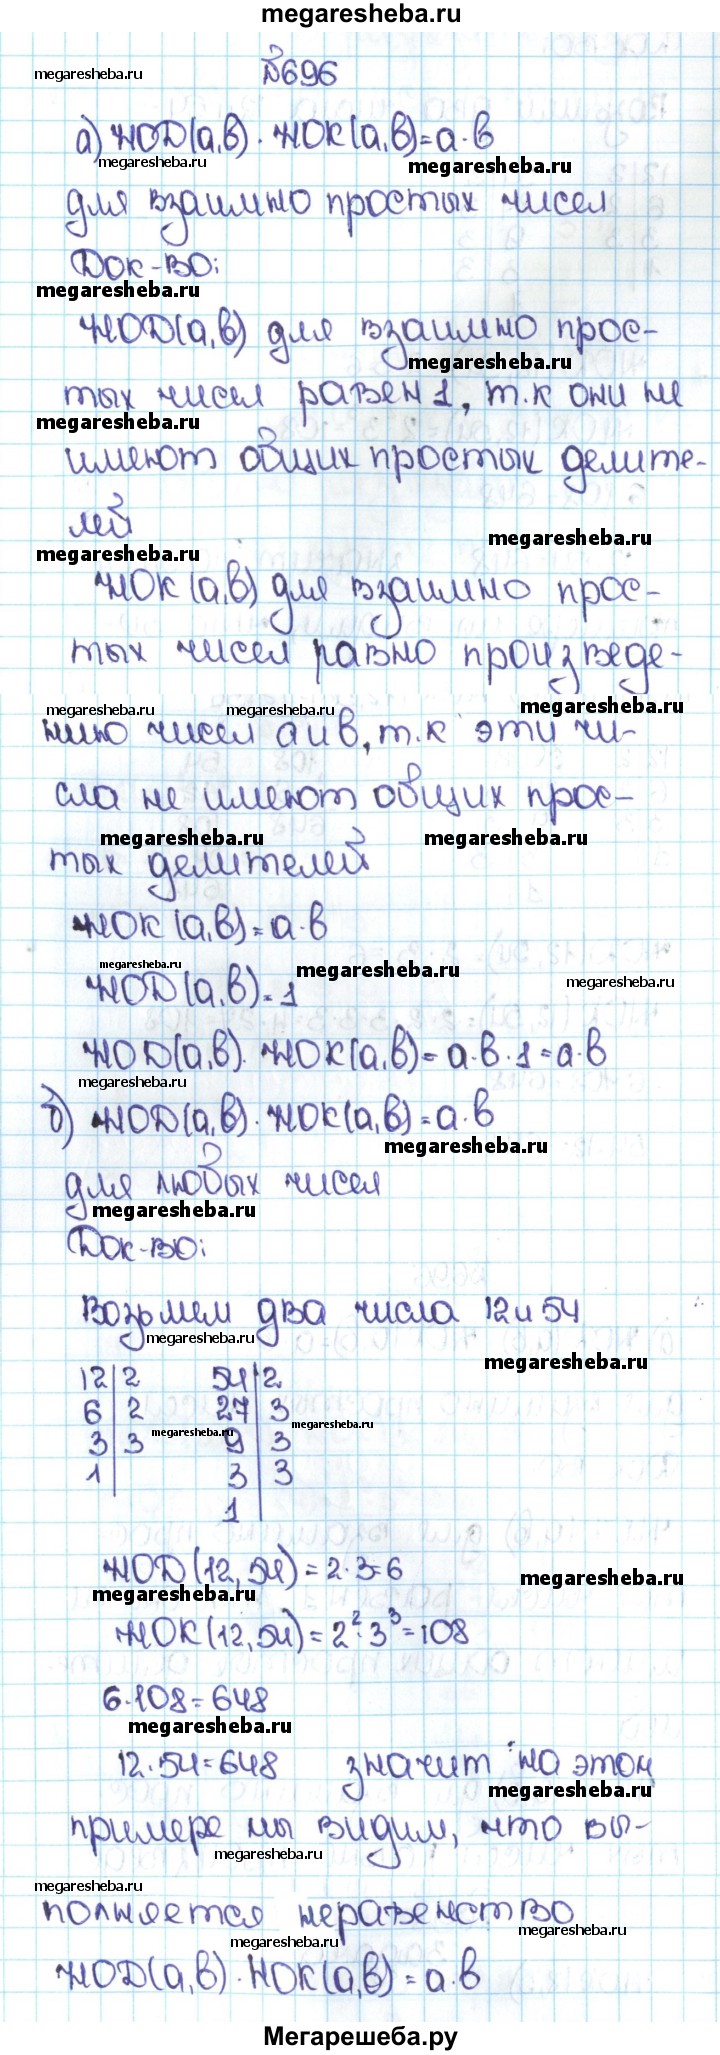 megaresheba.ru
№696
megaresheba.ru
а) НОД(а,в) · НОК(а,в)=а·в
megaresheba.ru
megaresheba.ru
для взаимно простых чисел
Док-во:
megaresheba.ru
НОД(а,в) для взаимно прос-
megaresheba.ru
тых чисел равен 1, т.к они не
megaresheba.ru
имеют общих простых делите-
лей
megaresheba.ru
megaresheba.ru
НОК(а,в) для взаимно прос-
тых чисел равно произведе-
megaresheba.ru
megaresheba.ru
megaresheba.ru
нию чисел а и в, т.к эти чи-
сла не имеют общих прос-
megaresheba.ru
megaresheba.ru
тых делителей
НОК(а,в)=а·в
megaresheba.ru
megaresheba.ru
megaresheba.ru
НОД(а,в)=1
НОД(а,в)·НОК(а,в)=а·в·1=а·в
megaresheba.ru
б) НОД(а,в)·НОК(а,в)=а·в
megaresheba.ru
для любых чисел
megaresheba.ru
Док-во:
Возьмем два числа 12 и 54
megaresheba.ru
megaresheba.ru
12|2 54|2
6|2 27|3
megaresheba.ru
3|3 9|3
megaresheba.ru
1| 3|3
1|
НОД(12,54)=2·3=6
megaresheba.ru
megaresheba.ru
НОК(12,54)=2²·3³=108
6·108=648
megaresheba.ru
12·54=648 значит на этом
megaresheba.ru
примере мы видим, что вы-
megaresheba.ru
megaresheba.ru
полняется неравенство
megaresheba.ru
megaresheba.ru
НОД(а,в)·НОК(а,в)=а·в
Мегарешеба.ру